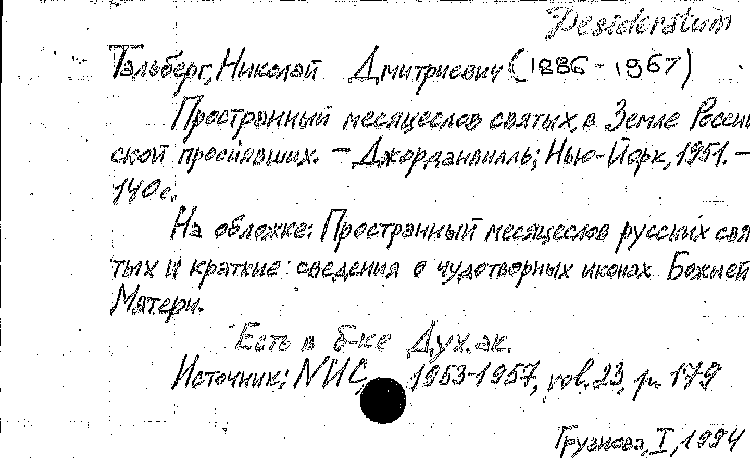 Desideratum
Тальберг, Николай Дмитриевич (1886-1967)
Пространный месяцеслов святых, в Земле Россий
ской просиявших. - Джорданвилль; Нью-Йорк, 1951. -
140 с.
На обложке: Пространный месяцеслов русских свя
тых и краткие сведения о чудотворных иконах Божией
Матери.
Есть в б-ке Дух. ак.
Источник: NUC, 1953-1957, vol. 23, p. 179
I, 1994